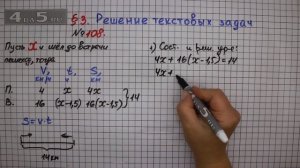 §3. Решение текстовых задач
№108.
Пусть x ч шёл до встречи
пешеход, тогда
V, км/ч t, ч S, км
П. 4 x 4x
В. 16 (x-1,5) 16(x-1,5) } 14
S=v·t
14км
1) Сост. и реш. ур-е:
4x+16(x-1,5)=14
4x+